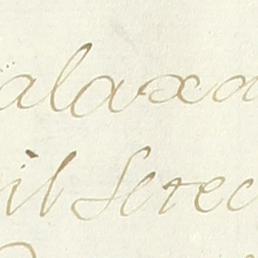 alaxa
il Serec